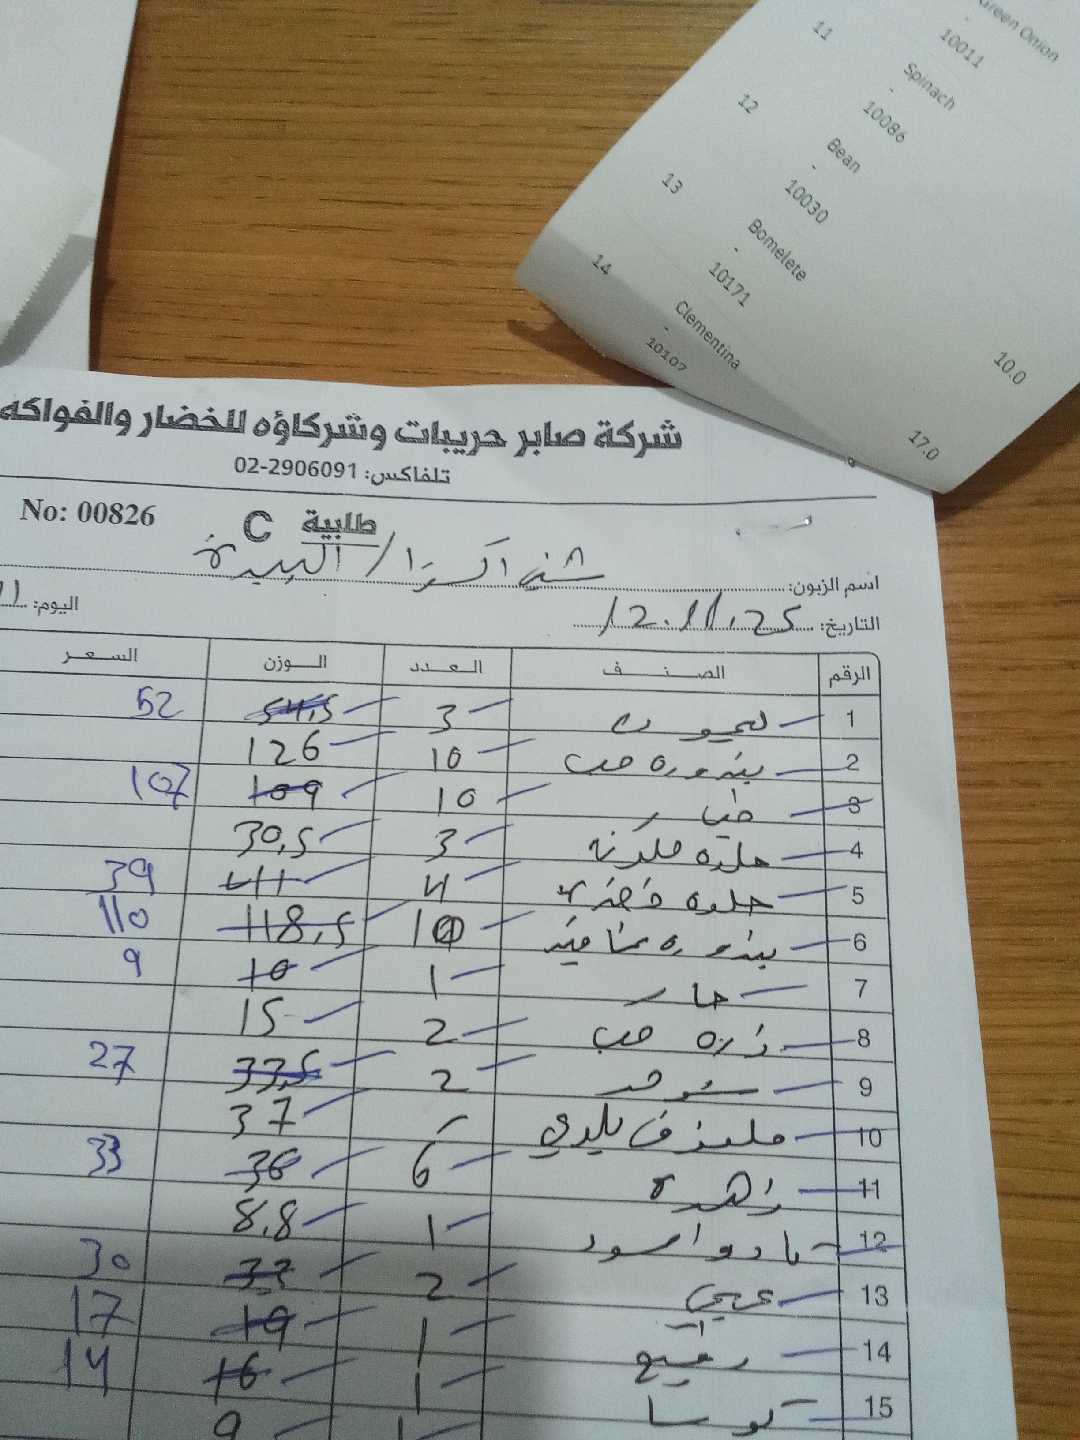 Green Onion
-
10011
11
Spinach
-
10086
12
Bean
-
10030
13
Bomelete
-
10171
10.0
14
Clementina
-
10107
17.0
شركة صابر حريبات وشركاؤه للخضار والفواكه
تلفاكس: 02-2906091
No: 00826
طلبية C
اسم الزبون: البيرة
التاريخ: 12.11.25
اليوم:
الرقم الصنف العدد الوزن السعر
1 ليمون 3 54,5 52
2 بندوره حب 10 126
3 خيار 10 109 107
4 حلوه ملونه 3 30,5
5 حلوه خضره 4 41 39
6 بندوره 10 118,5 110
7 حار 1 10 9
8 ذره حب 2 15
9 2 33,5 27
10 ملفوف بلدي 37
11 زهره 6 36 33
12 1 8,8
13 2 33 30
14 1 19 17
15 كوسا 1 16 14
1 9